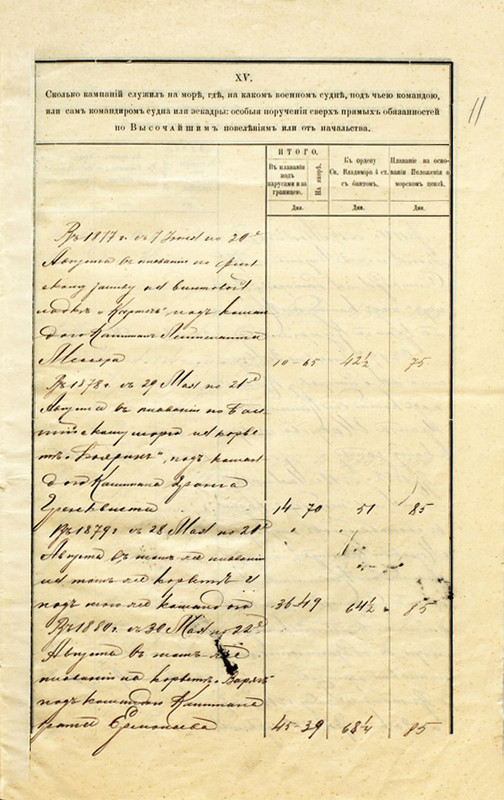 XV.
11
Сколько кампаній служилъ на морѣ, гдѣ, на какомъ военномъ суднѣ, подъ чьею командою,
или самъ командиромъ судна или эскадры: особыя порученія сверхъ прямыхъ обязанностей
по ВЫСОЧАЙШИМЪ повелѣніямъ или отъ начальства.
ИТОГО.
Въ плаваніи подъ парусами и за границею.
На якорѣ.
Къ ордену Св. Владиміра 4 ст. съ бантомъ.
Плаваніе на основаніи Положенія о морскомъ цензѣ.
Дни.
Дни.
Дни.
Въ 1877 г. съ 7 Іюня по 20е
Августа въ плаваніи по Фин
скому заливу на винтовой
лодкѣ „ “ подъ коман
дою Капитанъ Лейтенанта
10-65 42½ 75
Въ 1878 г. съ 29 Мая по 21е
Августа въ плаваніи по Бал
тійскому морю на корве
тѣ „Бояринъ“, подъ коман
дою Капитана 2 ранга
14-70 51 85
Въ 1879 г. съ 28 Мая по 20е
Августа въ томъ же плаваніи
на томъ же корветѣ и
подъ тою же командою
36-49 64½ 85
Въ 1880 г. съ 30 Мая по 22е
Августа въ томъ же
плаваніи на корветѣ „Варягъ“
подъ командою Капитана
ранга
45-39 68¼ 85